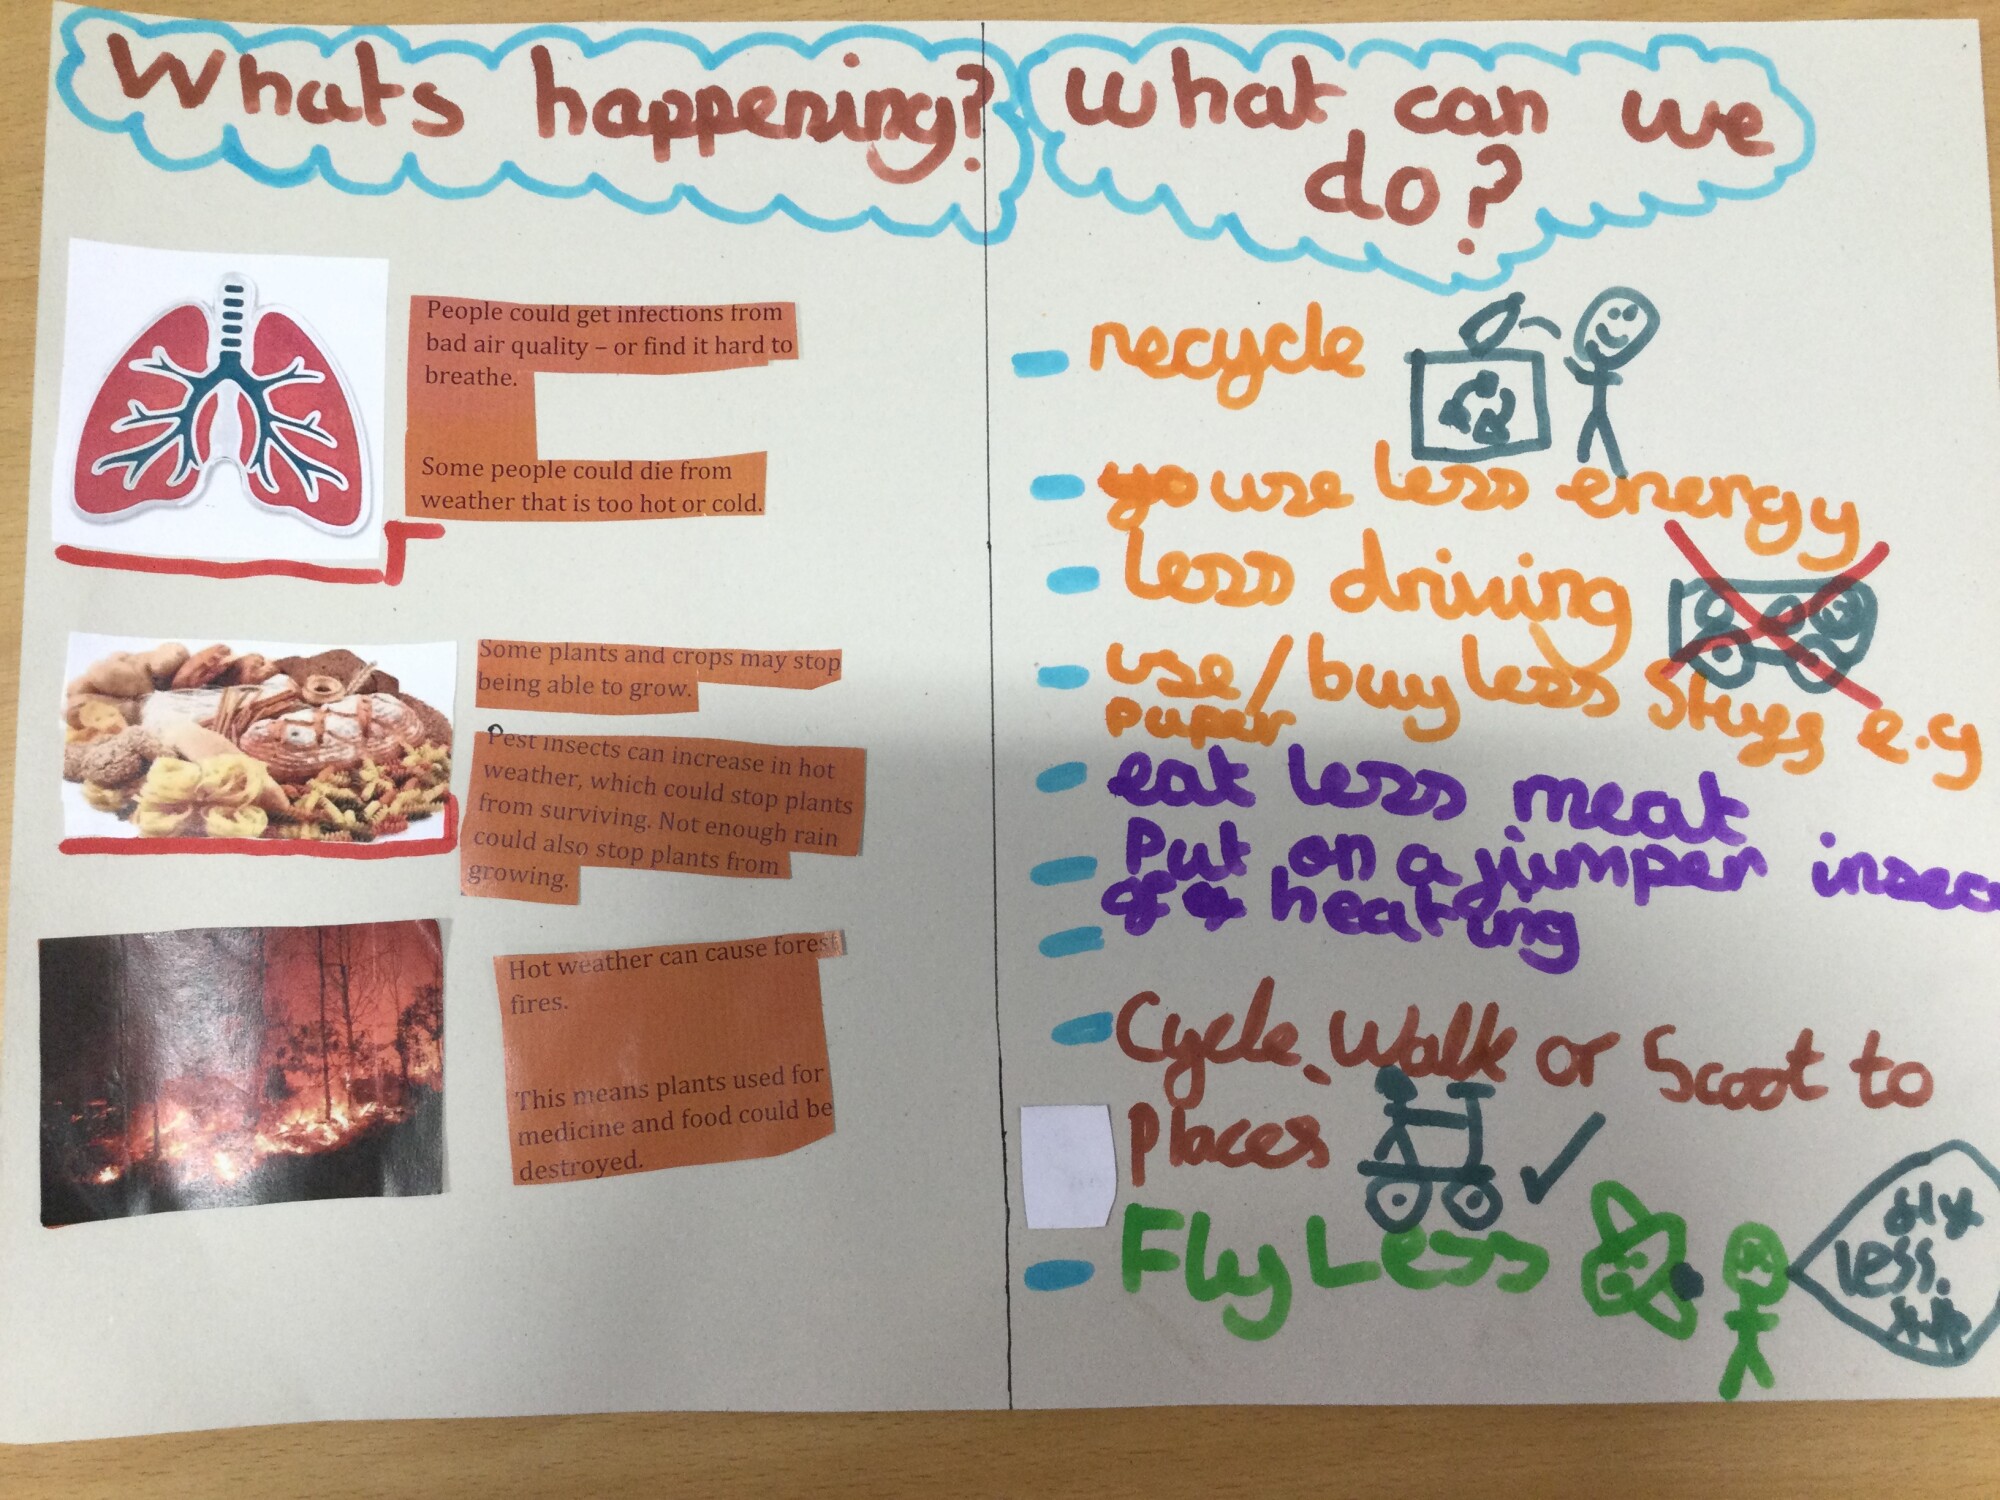 Whats happening?
People could get infections from
bad air quality – or find it hard to
breathe.
Some people could die from
weather that is too hot or cold.
Some plants and crops may stop
being able to grow.
Pest insects can increase in hot
weather, which could stop plants
from surviving. Not enough rain
could also stop plants from
growing.
Hot weather can cause forest
fires.
This means plants used for
medicine and food could be
destroyed.
What can we
do?
recycle
use less energy
less driving
use/buy less stuff e.g
paper
eat less meat
Put on a jumper
heating
Cycle, Walk or Scoot to
Places
Fly Less
less.